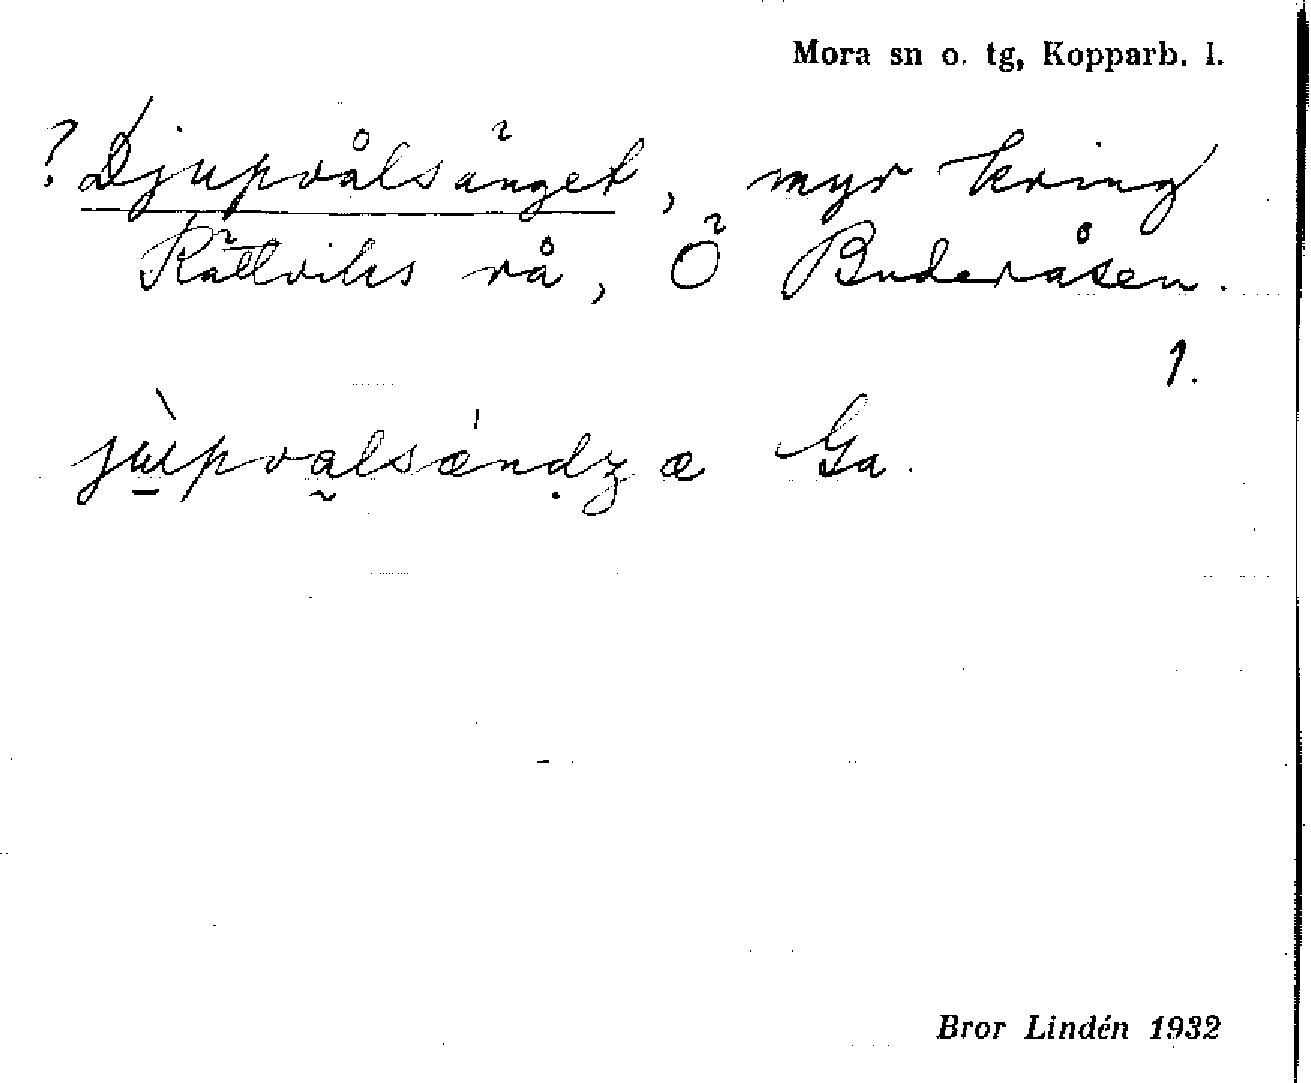 Mora sn o. tg, Kopparb. l.
? Djupvålsänget, myr kring
Rättviks rå, Ö Buderåsen.
1.
jùpvalsǽndʒæ Ga.
Bror Lindén 1932